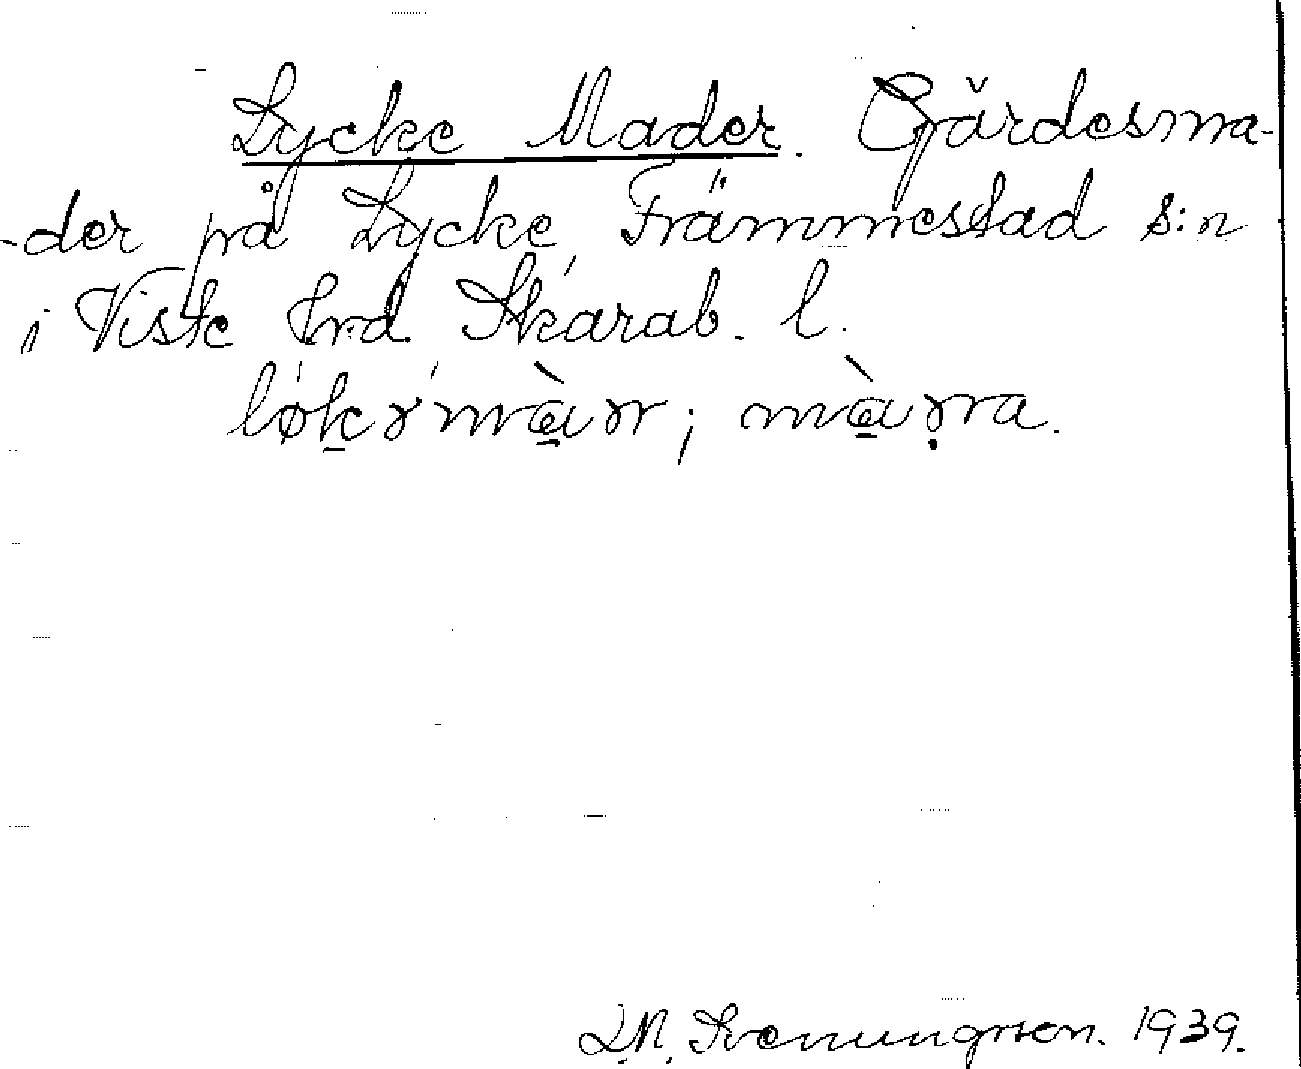 Lycke Mader. Gärdesma-
-der på Lycke, Främmestad s:n
i Viste hrd Skarab. l.
D.N. Svenungsson. 1939.